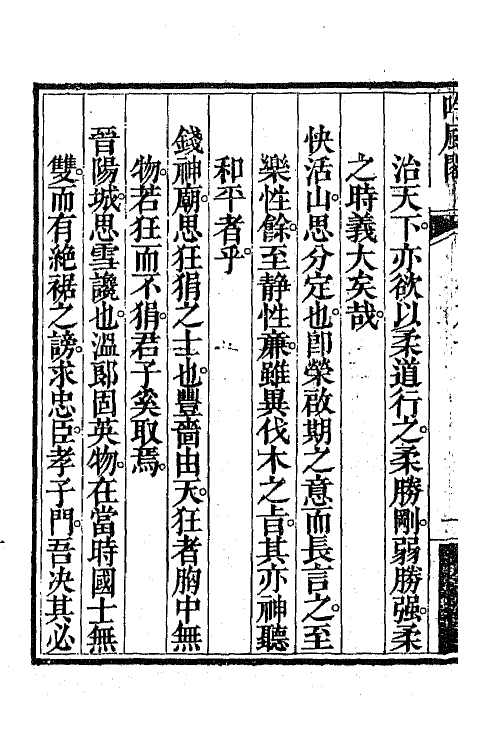 吟風閣
治天下。亦欲以柔道行之。柔勝剛。弱勝强。柔
之時義大矣哉。
快活山。思分定也。卽榮啟期之意而長言之。至
樂性餘。至静性廉。雖異伐木之旨。其亦神聽
和平者乎。
錢神廟。思狂狷之士也。豐嗇由天。狂者胸中無
物。若狂而不狷。君子奚取焉。
晉陽城。思雪讒也。溫郞固英物。在當時國士無
雙。而有絶裾之謗。求忠臣孝子門。吾决其必